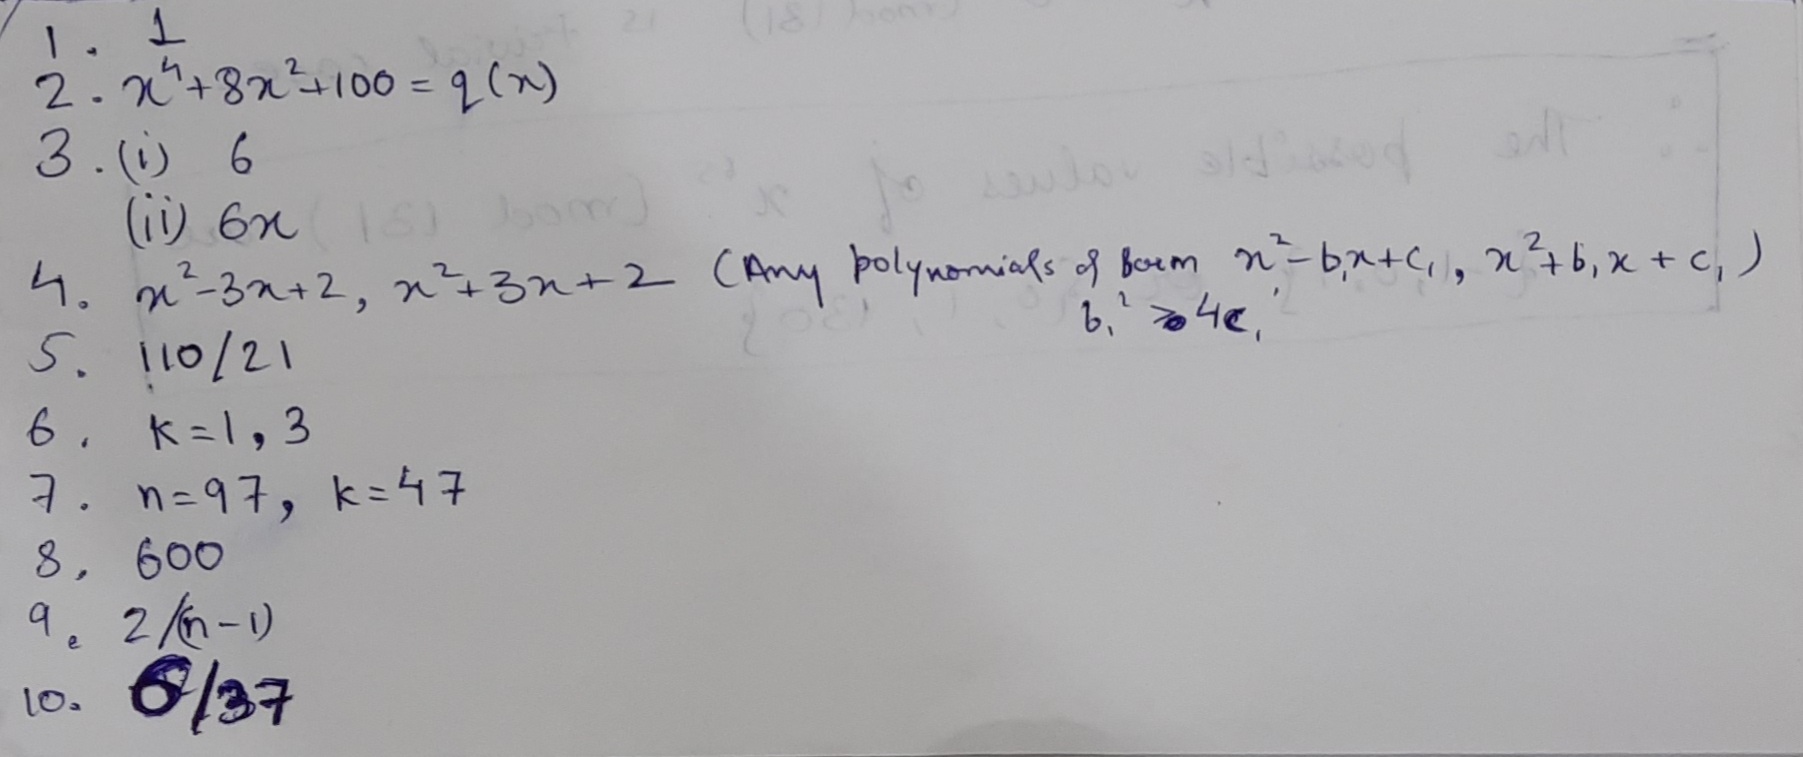 1. 1
2. x⁴+8x²+100 = q(x)
3. (i) 6
(ii) 6x
4. x²-3x+2, x²+3x+2 (Any polynomials of form x²-b₁x+c₁, x²+b₁x+c₁)
b₁² ≥ 4c₁
5. 110/21
6. k=1, 3
7. n=97, k=47
8. 600
9. 2/(n-1)
10. 6/37